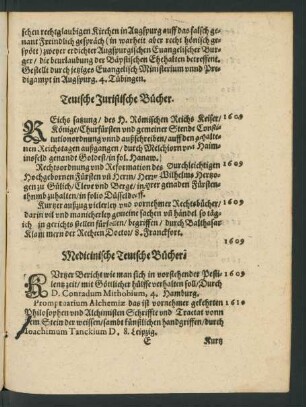 schen rechtglaubigen Kirchen in Augspurg auff das falsch ge-
nant Freindlich gespräch (in warheit aber recht hönisch ge-
spött) zweyer erdichter Augspurgischen Euangelischer Bur-
ger / die beurlaubung des Bäpstischen Ehethalten betreffent.
Gestellt durch jetziges Euangelisch Ministerium vnnd Pre-
digampt in Augspurg. 4. Tübingen.
Teutsche Juristische Bücher.
REichs satzung / des H. Römischen Reichs Keiser / 1609
Könige / Churfürsten vnd gemeiner Stende Consti-
tutionordnung vnnd ausschreiben / auff den gehalte-
nen Reichstagen außgangen / durch Melchiorn von Haim-
insfeld genandt Goldast / in fol. Hanaw.
Rechtsordnung vnd Reformation des Durchleichtigen 1609
Hochgebornen Fürsten vñ Herrn / Herrn Wilhelms Hertzo-
gen zu Gülich / Cleve vnd Berge / in jrer genaden Fürsten-
thumb zuhalten / in folio Düsseldorff.
Kurtzer außzug vielerley vnd vornehmer Rechtsbücher /
darin vil vnd mancherley gemeine sachen vñ händel so täg-
lich zu gerichts stellen fürfallen / begriffen / durch Balthasar
Klammern der Rechten Doctor / 8. Franckfort.
1609
Medicinische Teutsche Bücher:
KVrtzer Bericht wie man sich in vorstehender Pesti- 1609
lentzzeit / mit Göttlicher hülffe verhalten soll / Durch
D. Conradum Mithobium, 4. Hamburg.
Promptuarium Alchemiæ das ist vornehmer gelehrten 1610
Philosophen vnd Alchimisten Schriffte vnd Tractat vonn
dem Stein der weissen / sambt künstlichen handgriffen / durch
Ioachimum Tanckium D. 8. Leipzig.
E Kurtz